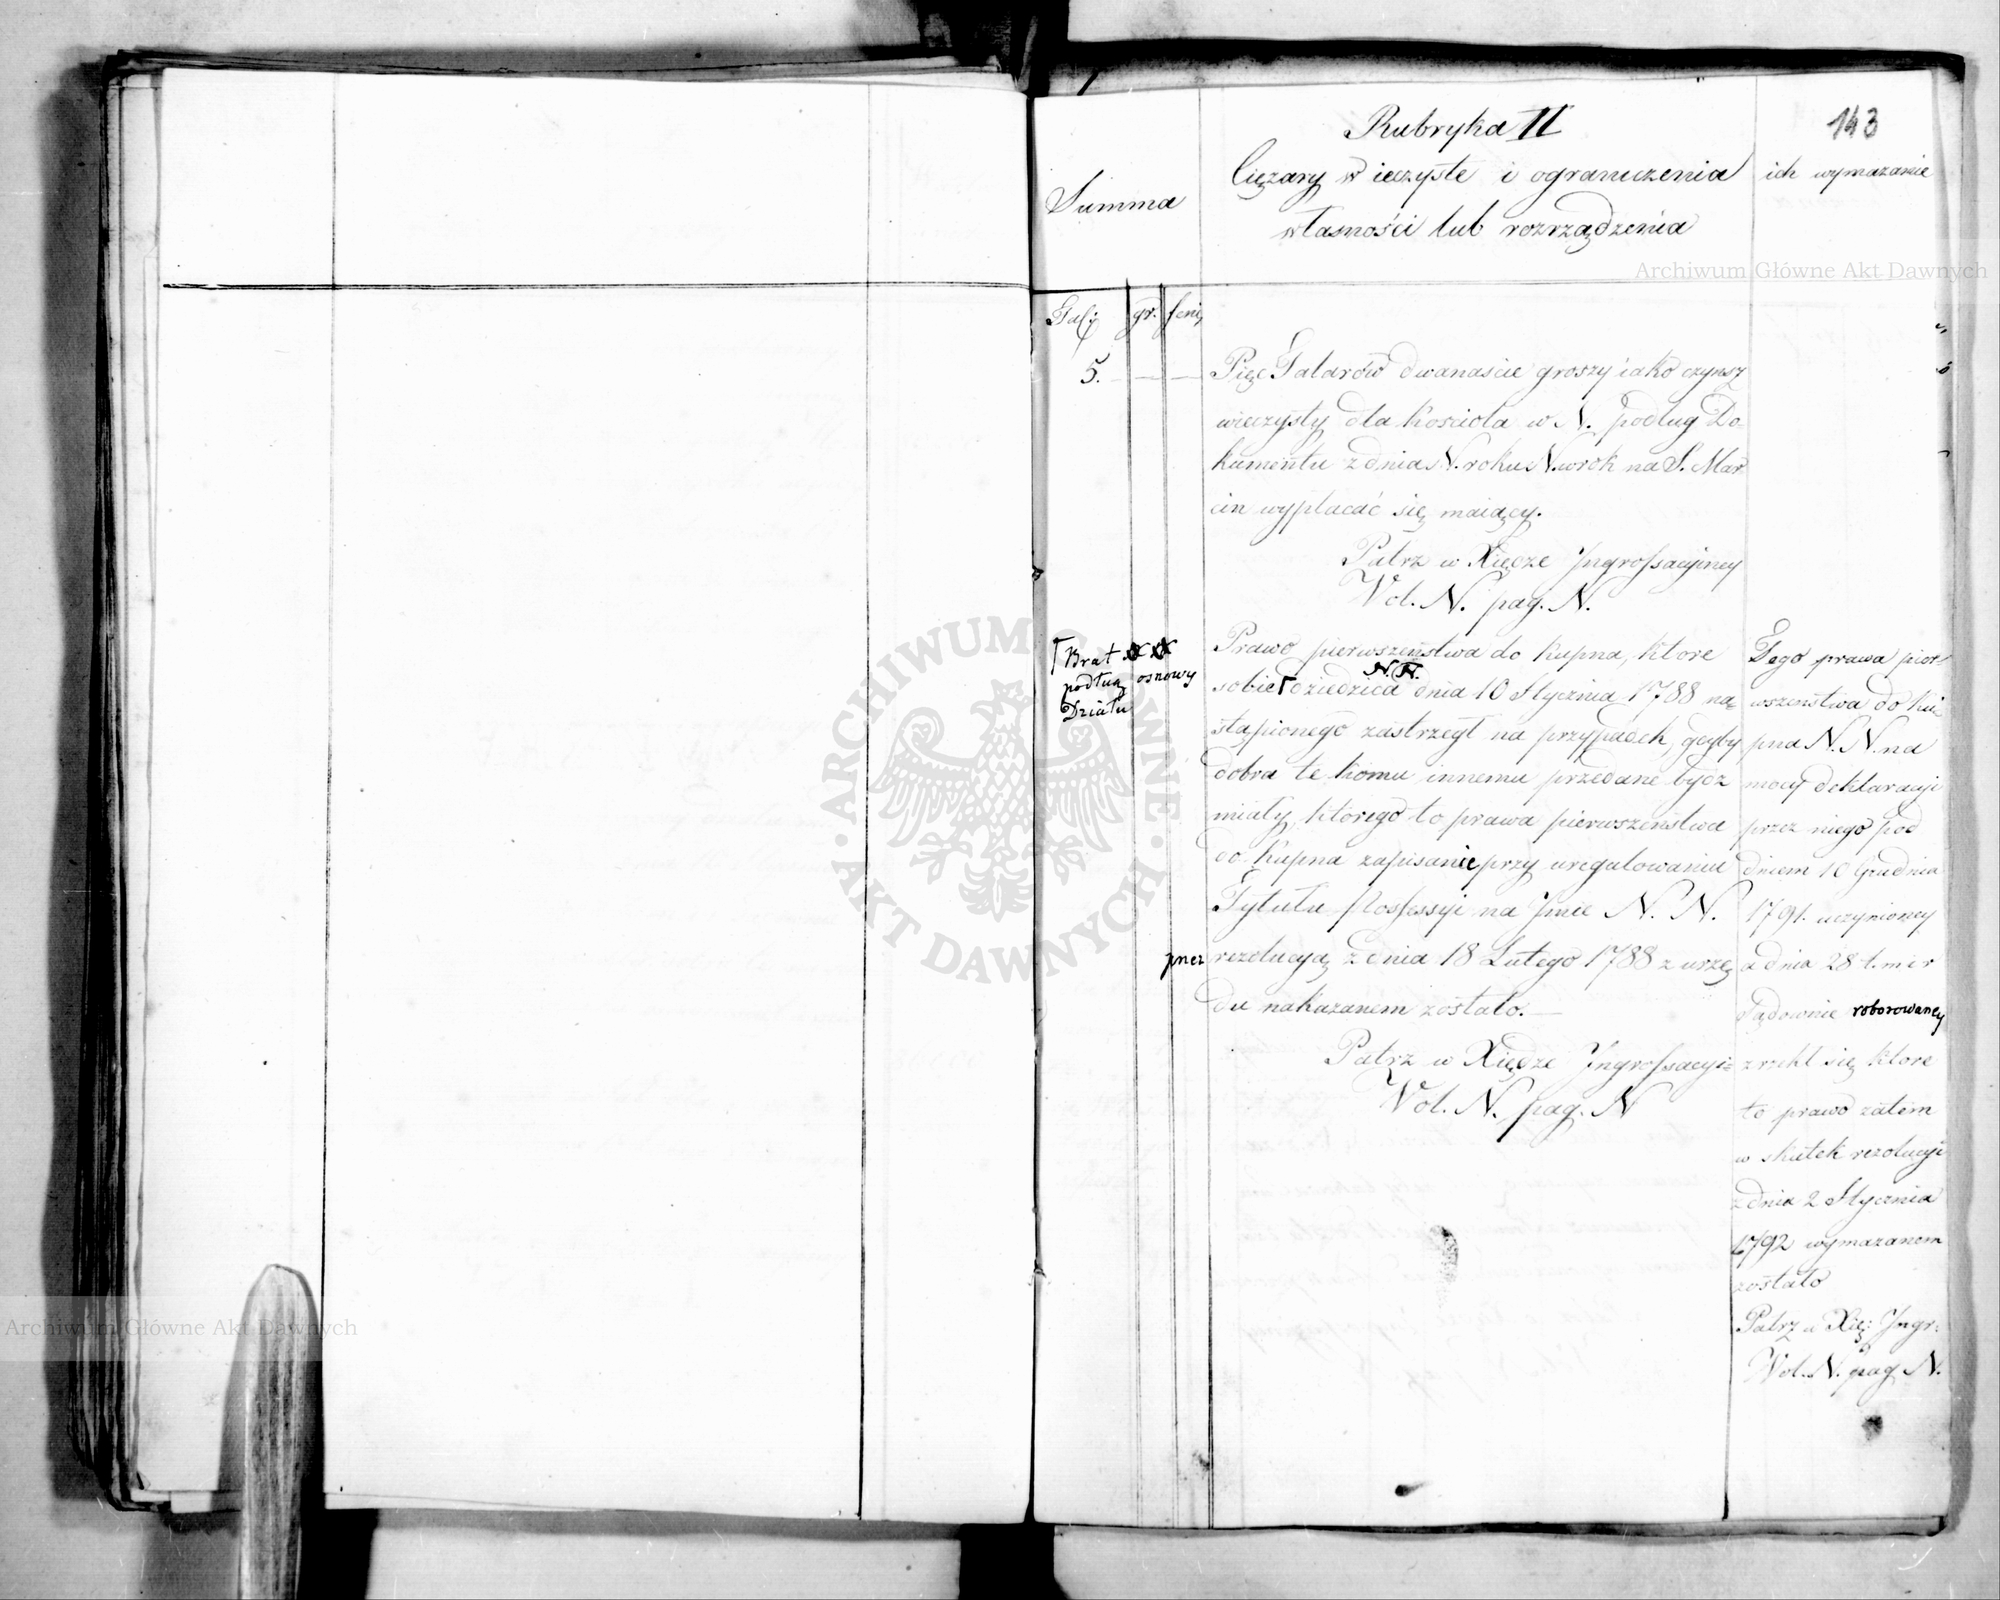 143
Rubryka II
Summa
Ciężary wieczyste i ograniczenia
własności lub rozrządzenia
ich wymazanie
Tal: gr. feni
5. — —
Pięc Talarów dwanaście groszy iako czynsz
wieczysty dla Kościoła w N. podług Do-
kumentu z dnia N. roku N. w rok na S. Mar
cin wypłacać się maiący.
Patrz w Xiędze Ingrossacyiney
Vol. N. pag. N.
Brat
podług osnowy
Działu
Prawo pierwszeństwa do kupna, ktore
sobie Dziedzica N. N. dnia 10 Stycznia 1788 na
stąpionego zastrzegł na przypadek, gdyby
dobra te komu innemu przedane bydz
miały, którego to prawa pierwszeństwa
do kupna zapisanie przy uregulowaniu
Tytułu Possessyi na Jmie N. N.
przez rezolucyą z dnia 18 Lutego 1788 z urzę
du nakazanem zostało. —
Patrz w Xiędze Ingrossacyi=
Vol. N. pag. N
Tego prawa pier-
wszeństwa do Ku-
pna N. N. na
mocy deklaracyi
przez niego pod
dniem 10 Grudnia
1791. uczynioney
a dnia 28 t. m i r
Sądownie roborowaney
zrzekł się ktore
to prawo zatem
w skutek rezolucyi
z dnia 2 Stycznia
1792 wymazanem
zostało
Patrz w Xię: Ingr:
Vol. N. pag N.
Archiwum Główne Akt Dawnych
Archiwum Główne Akt Dawnych
ARCHIWUM GŁÓWNE · AKT DAWNYCH ·